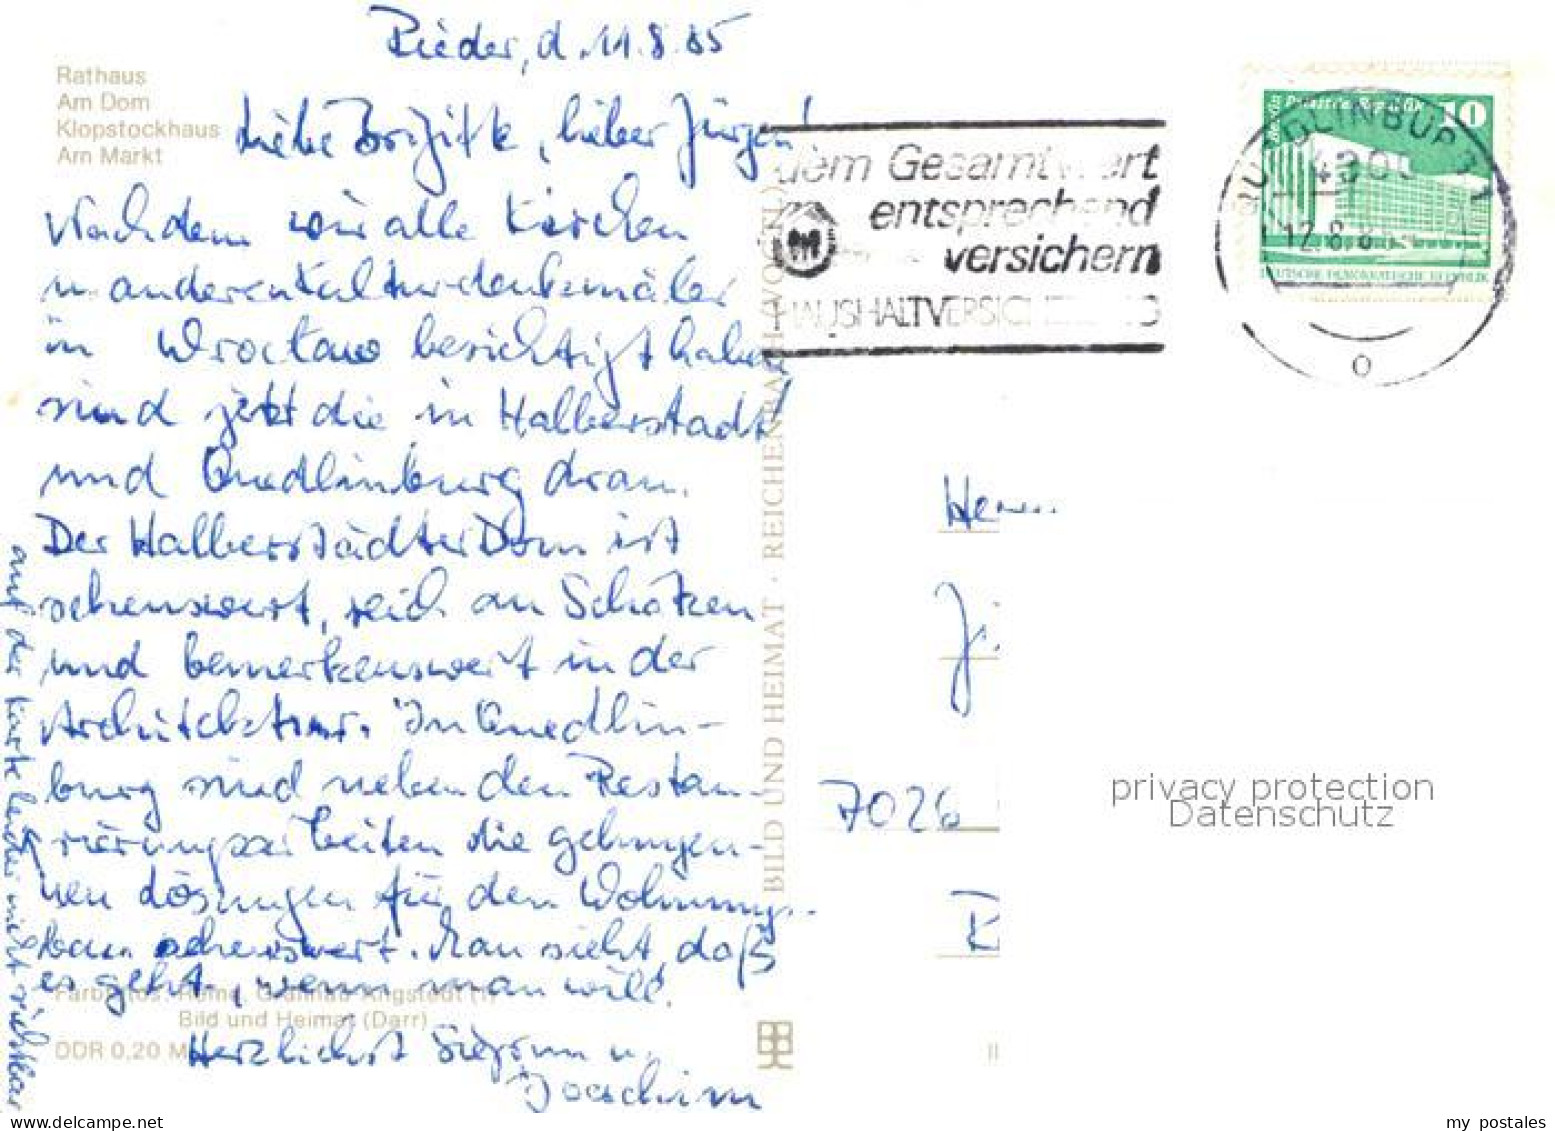 Rieder, d. 11.8.85
Rathaus
Am Dom
Klopstockhaus
Am Markt
Liebe Brigitte, lieber Jürgen!
Nachdem wir alle Kirchen
u. anderen Kulturdenkmäler
in Wroclaw besichtigt haben
sind jetzt die in Halberstadt
und Quedlinburg dran.
Der Halberstädter Dom ist
sehenswert, reich an Schätzen
und bemerkenswert in der
Architektur. In Quedlin-
burg sind neben den Restau-
rierungsarbeiten die gelunge-
nen Lösungen für den Wohnungs-
bau sehenswert. Man sieht, daß
es geht, wenn man will.
Herzlichst Sigrun u.
Joachim
auf der Karte leider nicht sichtbar
Bild und Heimat (Darr)
DDR 0,20 M
BILD UND HEIMAT · REICHENBACH (VOGTL)
dem Gesamtwert
entsprechend
versichern
HAUSHALTVERSICHERUNG
10
QUEDLINBURG 1
4300
DEUTSCHE DEMOKRATISCHE REPUBLIK
Herrn
7026
privacy protection
Datenschutz
delcampe.net
my_postales